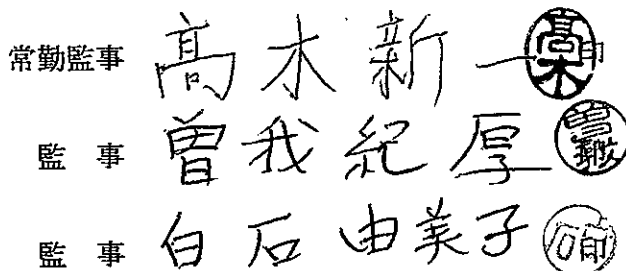 常勤監事 髙木新一 髙木 印
監事 曽我紀厚 曽我
監事 白石由美子 印